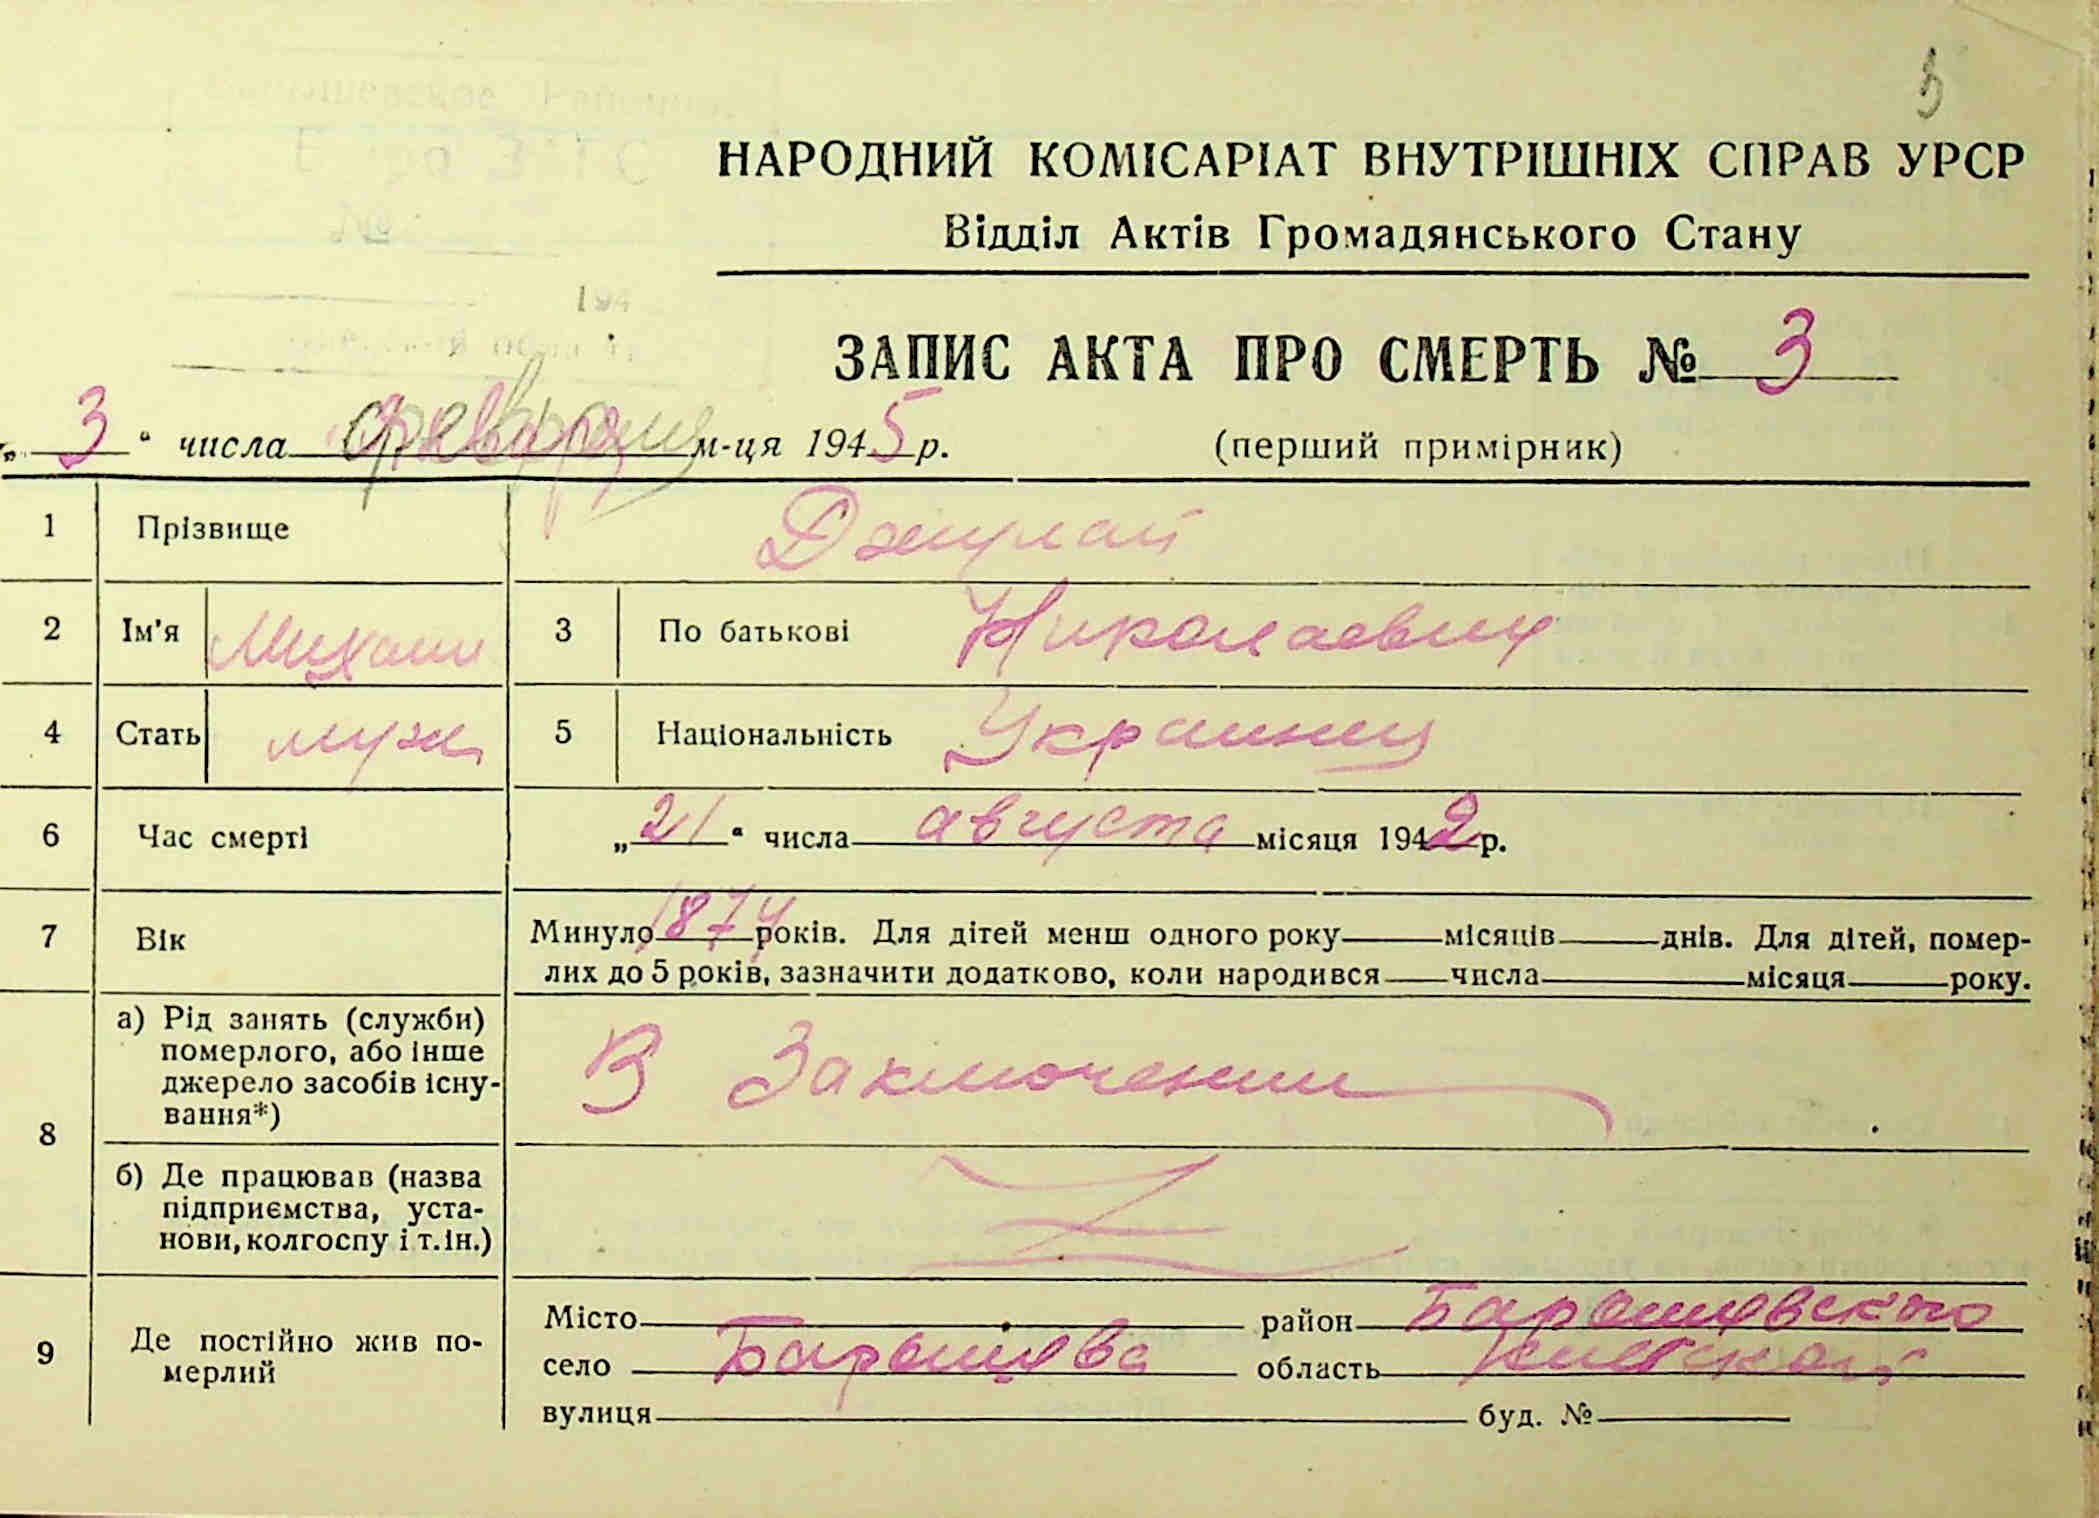 3
НАРОДНИЙ КОМІСАРІАТ ВНУТРІШНІХ СПРАВ УРСР
Відділ Актів Громадянського Стану
ЗАПИС АКТА ПРО СМЕРТЬ № 3
„ 3 “ числа февраля м-ця 1945 р.
(перший примірник)
1 Прізвище Джулай
2 Ім'я Михаил 3 По батькові Николаевич
4 Стать муж 5 Національність Украинец
6 Час смерті „ 21 “ числа августа місяця 1942 р.
7 Вік Минуло 1874 років. Для дітей менш одного року місяців днів. Для дітей, помер-
лих до 5 років, зазначити додатково, коли народився числа місяця року.
8 а) Рід занять (служби)
померлого, або інше
джерело засобів існу-
вання*)
В Заключении
б) Де працював (назва
підприємства, уста-
нови, колгоспу і т.ін.)
9 Де постійно жив по-
мерлий
Місто район Барышевского
село Барышевка область Киевской
вулиця буд. №